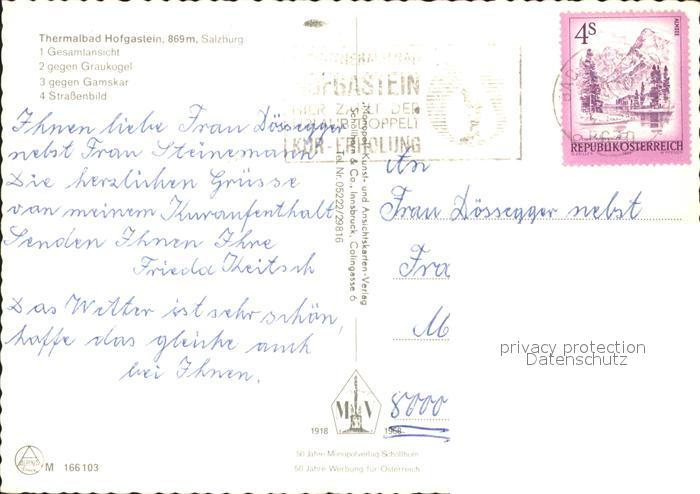 Thermalbad Hofgastein, 869 m, Salzburg
1 Gesamtansicht
2 gegen Graukogel
3 gegen Gamskar
4 Straßenbild
Ihnen liebe Frau Dössegger
nebst Frau Steinemann
Die herzlichen Grüsse
van meinem Kuraufenthalt
Senden Ihnen Ihre
Frieda Keitsch
Das Wetter ist sehr schön,
hoffe das gleiche auch
bei Ihnen.
M 166103
HOFGASTEIN
HIER ZÄHLT DER
URLAUB DOPPELT
KUR-ERHOLUNG
Monopol-Kunst- und Ansichtskarten-Verlag
Schöllhorn & Co., Innsbruck, Colingasse 6
Tel. Nr. 05222/29816
4S
ALMSEE
REPUBLIK ÖSTERREICH
An
Frau Dössegger nebst
Fra
M
8000
privacy protection
Datenschutz
M V
1918 1968
50 Jahre Monopolverlag Schöllhorn
50 Jahre Werbung für Österreich